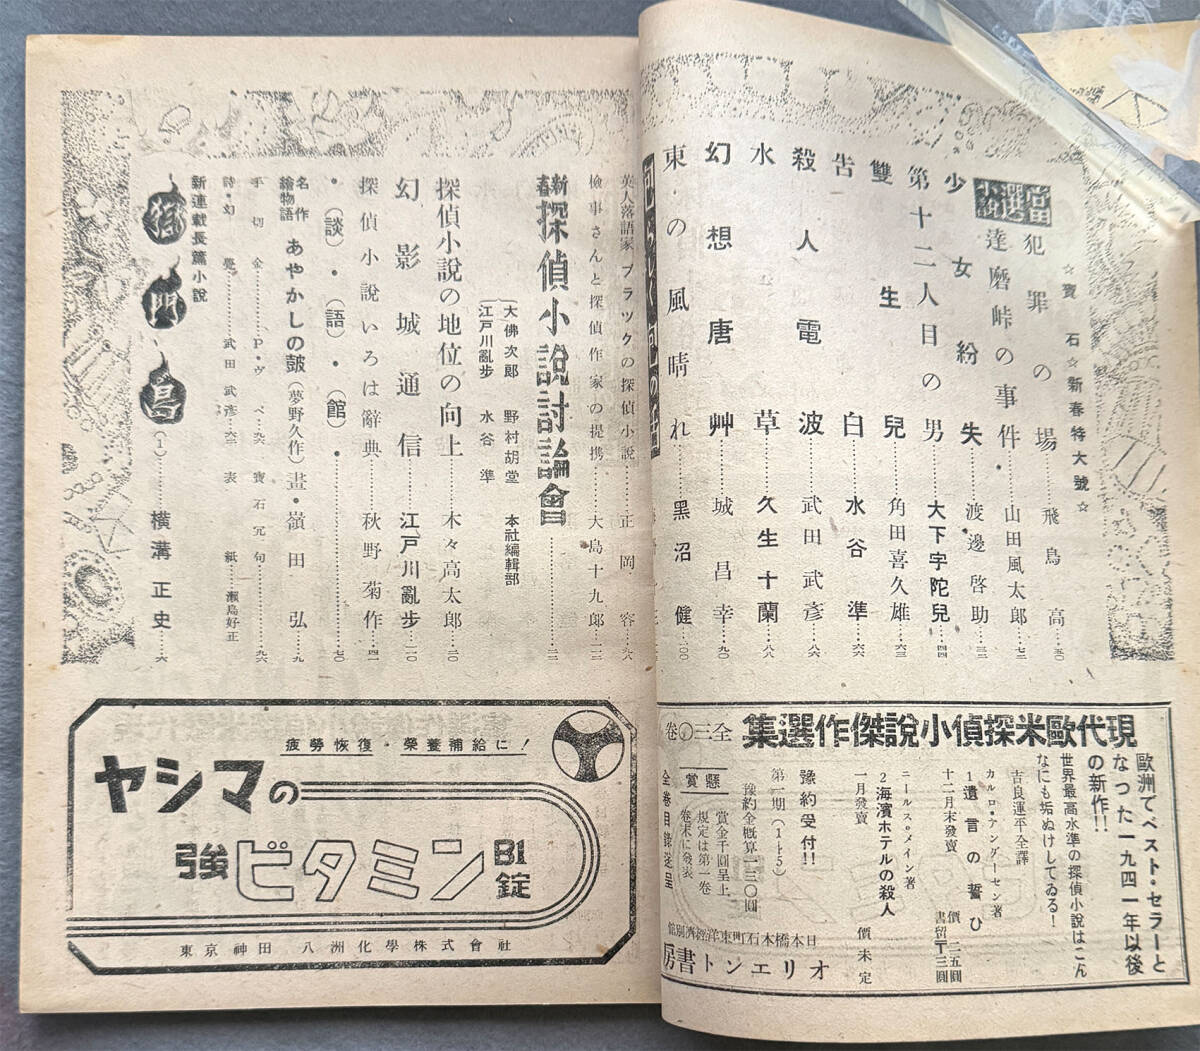 ☆寶石☆新春特大號☆
當選小說
犯罪の場……飛鳥高…五〇
達磨峠の事件……山田風太郎…七二
少女紛失……渡邊啓助…三二
第十二人目の男……大下宇陀兒…四四
雙生兒……角田喜久雄…六三
告白……水谷準…
殺人電波……武田武彥…八六
水草……久生十蘭…八八
幻想唐艸……城昌幸…九〇
東の風晴れ……黑沼健…一〇〇
英人落語家ブラックの探偵小說……正岡容…
檢事さんと探偵作家の提携……大島十九郎…一三
新春探偵小說討論會……二二
大佛次郎 野村胡堂 本社編輯部
江戶川亂步 水谷準
探偵小說の地位の向上……木々高太郎…二〇
幻影城通信……江戶川亂步…二〇
探偵小說いろは辭典……秋野菊作…四一
・(談)・(語)・(館)・……七〇
名作繪物語 あやかしの鼓(夢野久作)畫・嶺田弘…九
手切金……P・ヴ ベ…九六 寶石冗句……九六
詩・幻覺……武田武彥…六三 表紙…瀨島好正
新連載長篇小說
獄門島(一)……橫溝正史…六
現代歐米探偵小說傑作選集 全三〇卷
歐洲でベスト・セラーと
なつた一九四一年以後
の新作!!
世界最高水準の探偵小說はこん
なにも垢ぬけしてゐる!
吉良運平全譯
カルロ・アンダーセン著
1遺言の誓ひ
十二月末發賣 價二五圓
書留〒三圓
ニールス・メイン著
2海濱ホテルの殺人
一月發賣 價未定
豫約受付!!
第一期(1ー5)
豫約金概算一三〇圓
懸賞
賞金千圓呈上
規定は第一卷
卷末に發表
全卷目錄送呈
日本橋本石町東洋經濟別館
オリエント書房
疲勞恢復・榮養補給に!
ヤシマの
強ビタミンB1錠
東京神田 八洲化學株式會社